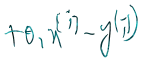 +θ₁x⁽ⁱ⁾-y⁽ⁱ⁾